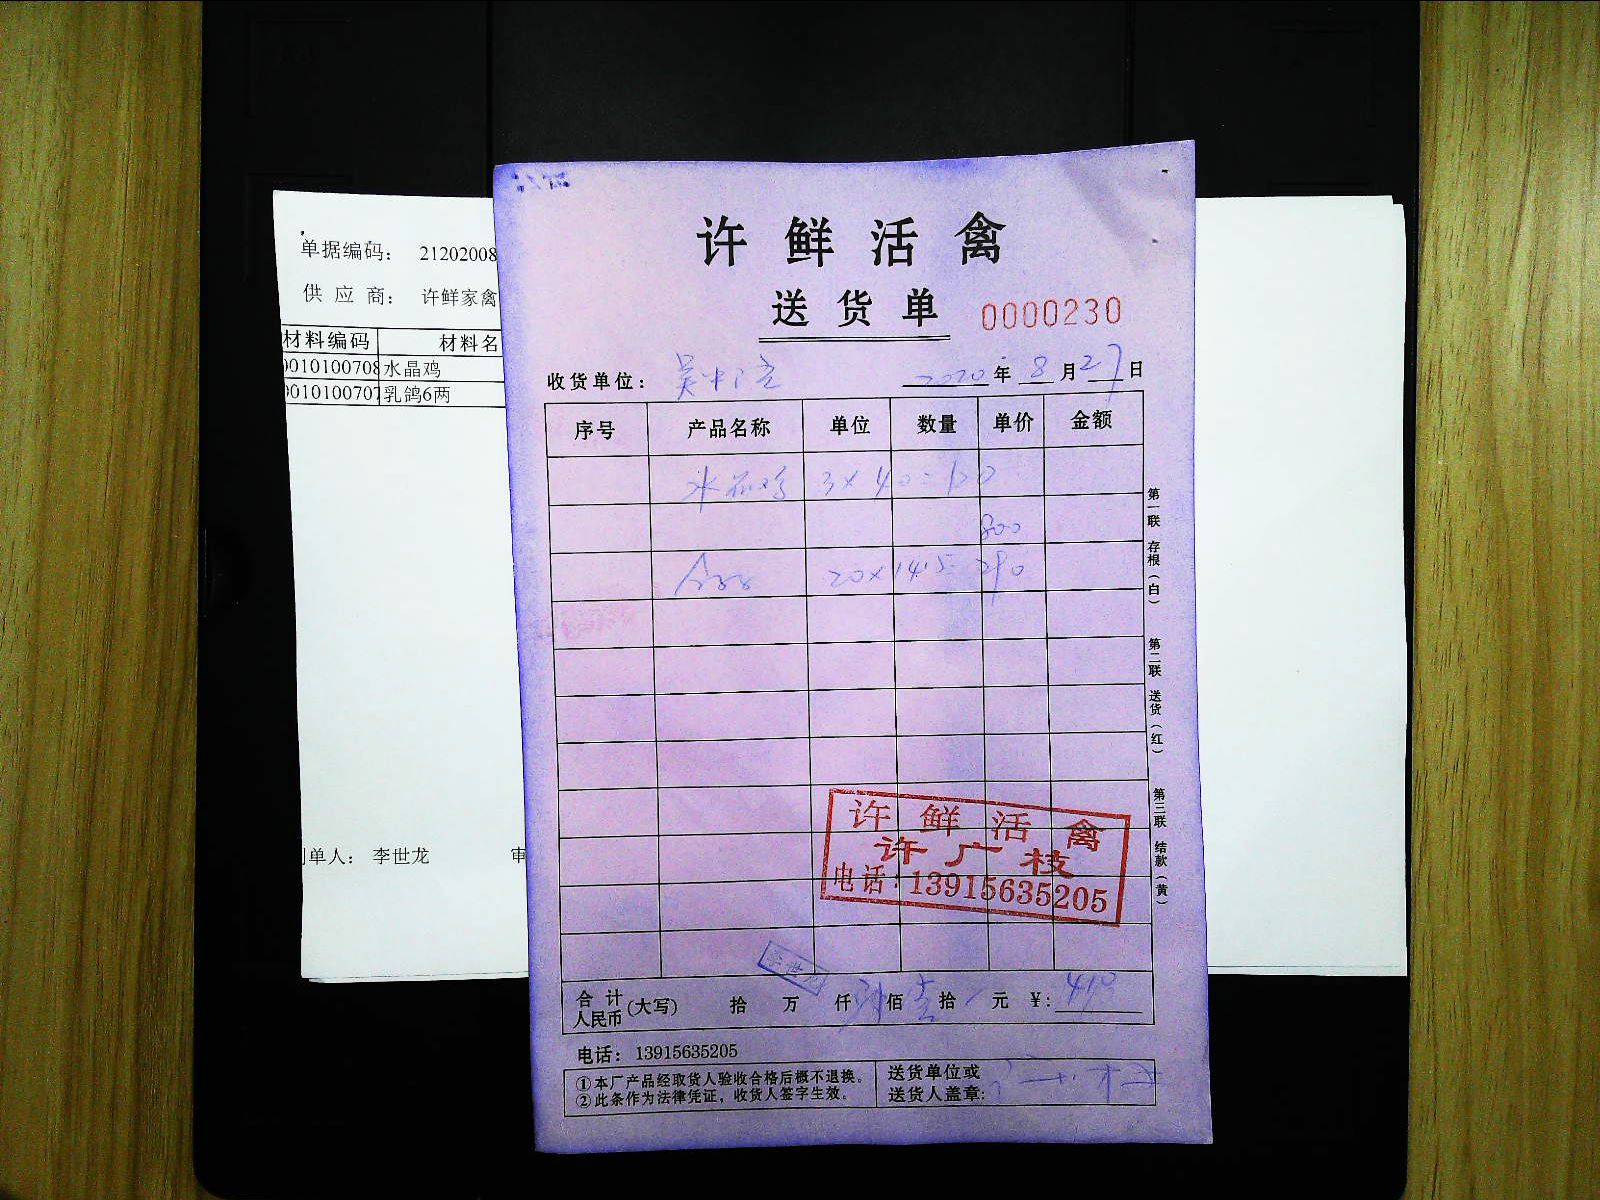 单据编码： 21202008
供 应 商： 许鲜家禽
材料编码 材料名
0010100708 水晶鸡
0010100707 乳鸽6两
制单人： 李世龙 审
许鲜活禽
送货单 0000230
收货单位： 吴中店 2020年8月27日
序号 产品名称 单位 数量 单价 金额
水晶鸡 3×40=120
800
20×14.5=290
第一联 存根（白）
第二联 送货（红）
第三联 结款（黄）
许鲜活禽
许广枝
电话：13915635205
李世龙
合计人民币(大写) 拾 万 仟 肆佰 壹拾 元 ¥: 410
电话：13915635205
①本厂产品经取货人验收合格后概不退换。
②此条作为法律凭证，收货人签字生效。
送货单位或
送货人盖章: